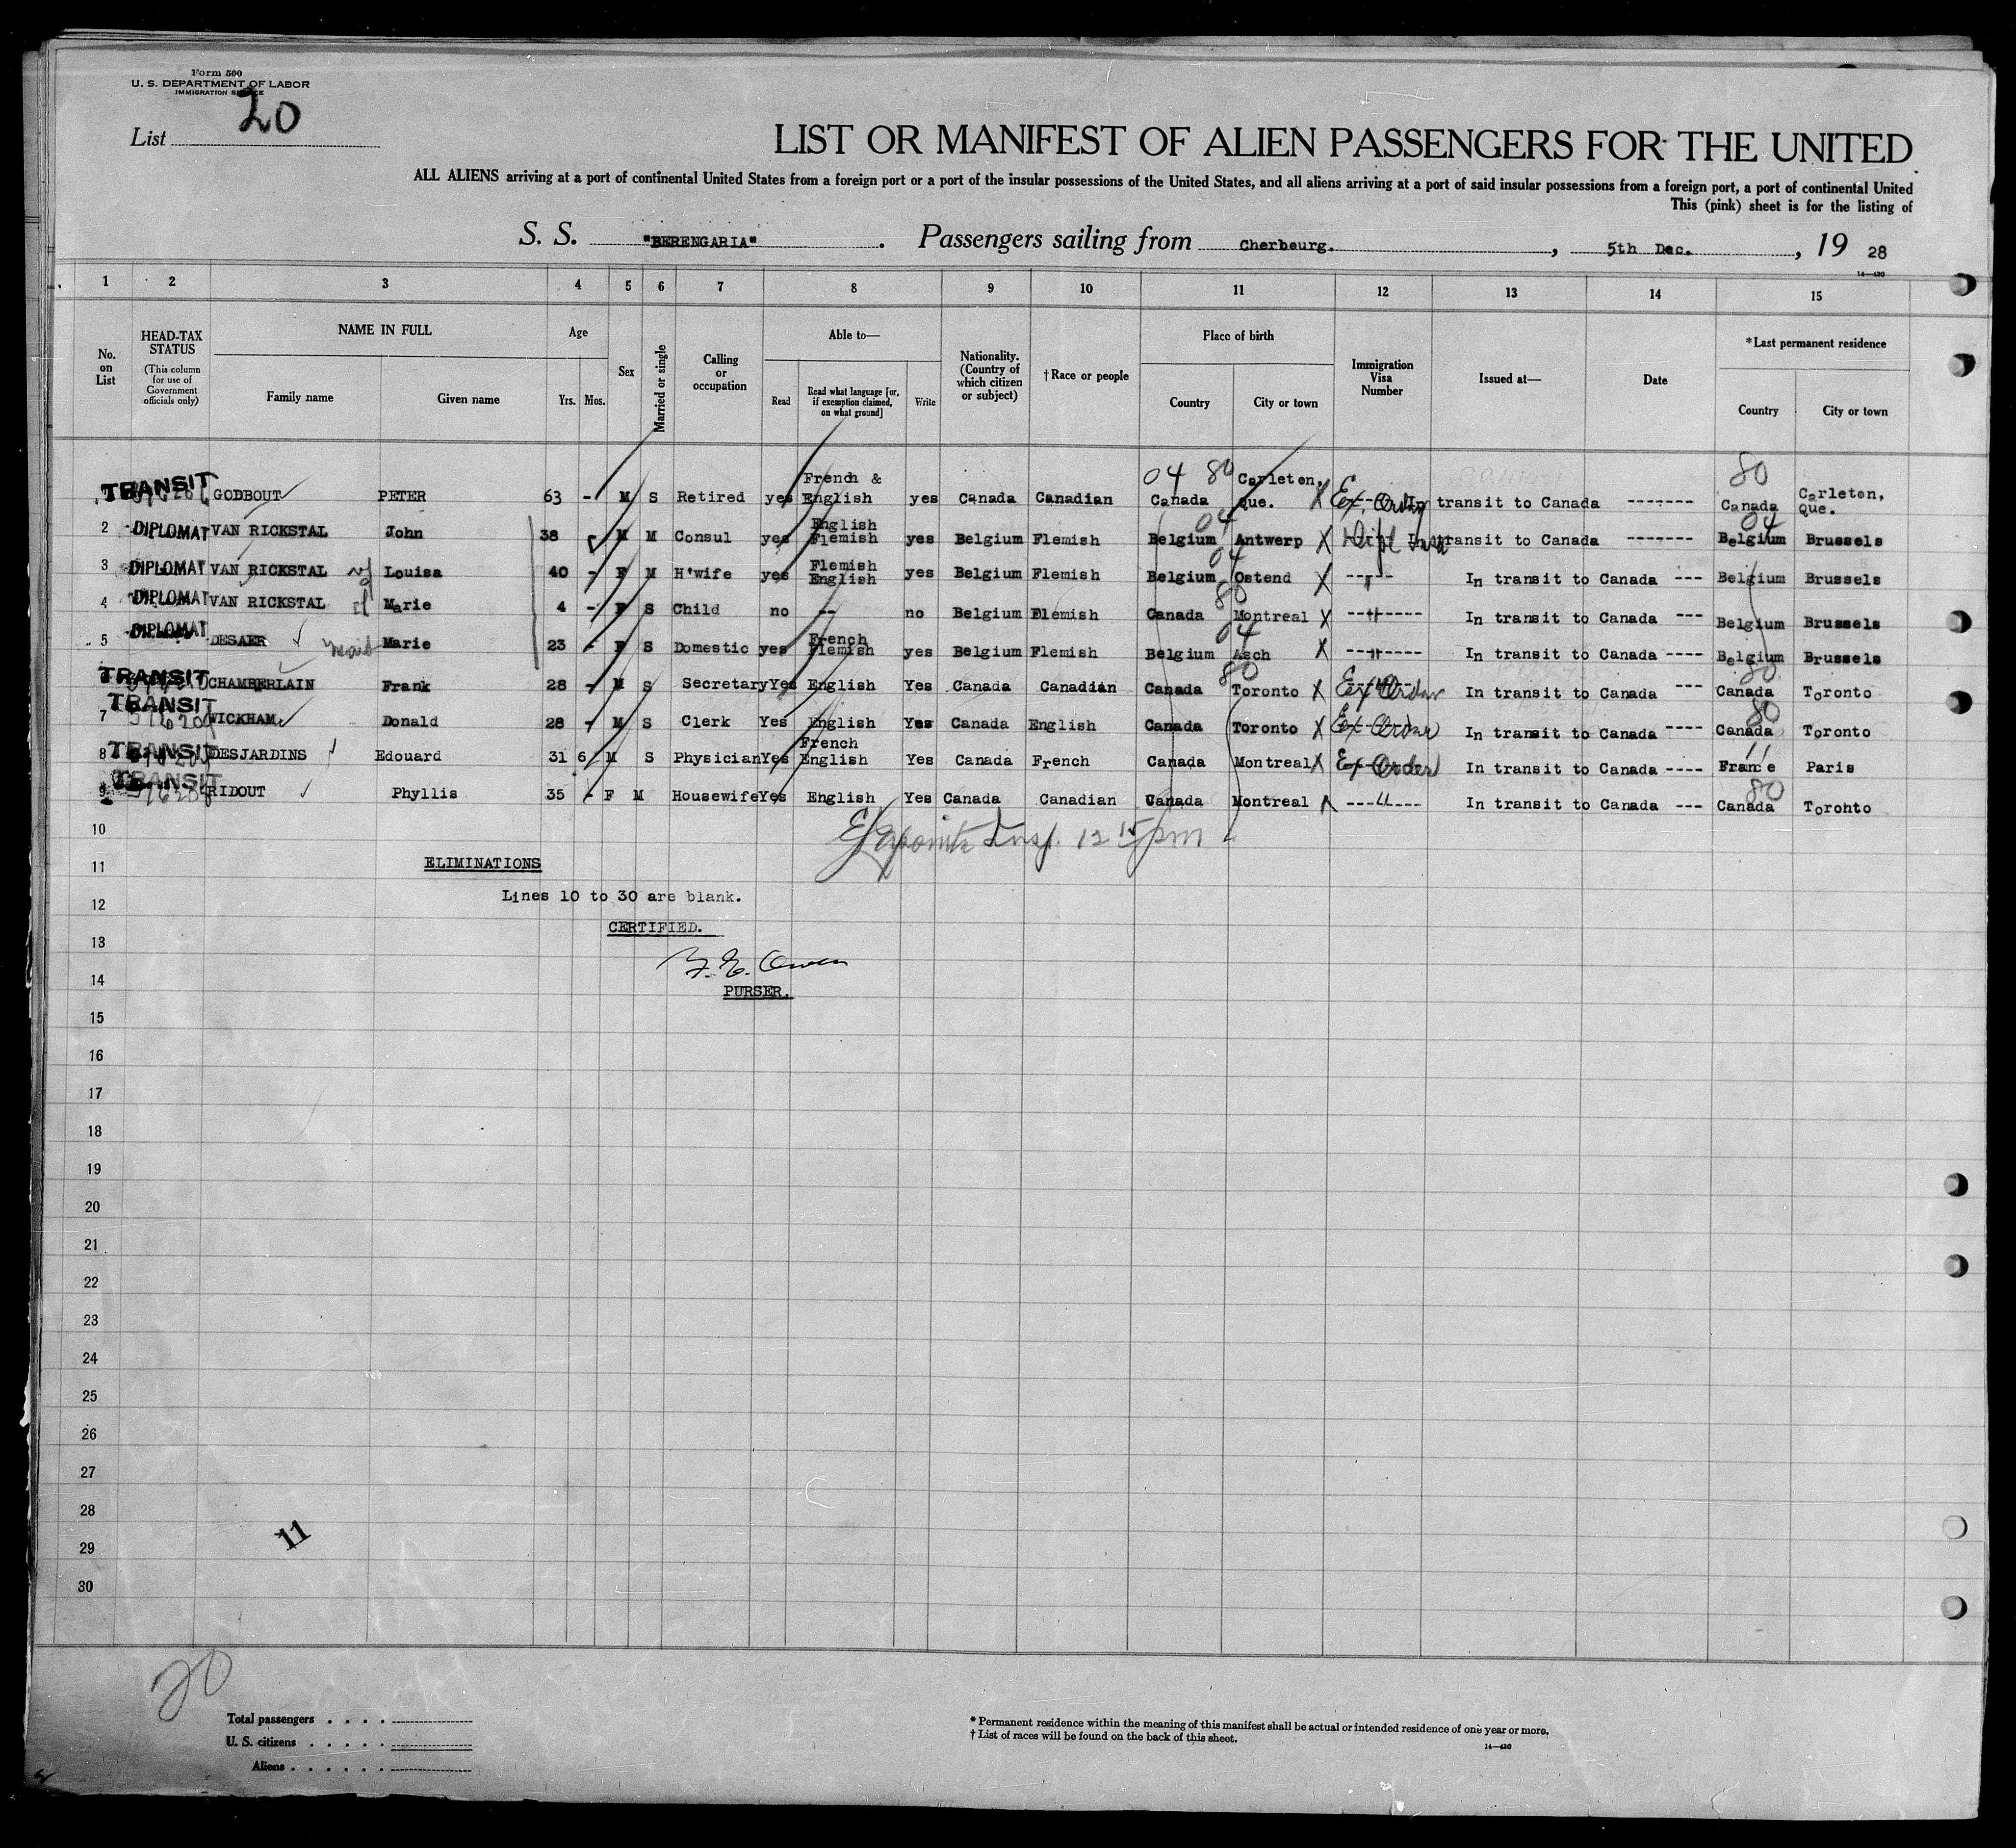 Form 500
U. S. DEPARTMENT OF LABOR
IMMIGRATION SERVICE
List 20
LIST OR MANIFEST OF ALIEN PASSENGERS FOR THE UNITED
ALL ALIENS arriving at a port of continental United States from a foreign port or a port of the insular possessions of the United States, and all aliens arriving at a port of said insular possessions from a foreign port, a port of continental United
This (pink) sheet is for the listing of
S. S. "BERENGARIA". Passengers sailing from Cherbourg. , 5th Dec. , 19 28
14—430
1 2 3 4 5 6 7 8 9 10 11 12 13 14 15
No. on List HEAD-TAX STATUS (This column for use of Government officials only) NAME IN FULL Family name Given name Age Yrs. Mos. Sex Married or single Calling or occupation Able to— Read Read what language [or, if exemption claimed, on what ground] Write Nationality. (Country of which citizen or subject) †Race or people Place of birth Country City or town Immigration Visa Number Issued at— Date *Last permanent residence Country City or town
TRANSIT GODBOUT PETER 63 - M S Retired yes French & English yes Canada Canadian 04 80 Canada Carleton, Que. X Ex. Order In transit to Canada ------- 80 Canada Carleton, Que.
2 DIPLOMAT VAN RICKSTAL John 38 M M Consul yes English Flemish yes Belgium Flemish Belgium 04 Antwerp X Dipl In transit to Canada ------- 04 Belgium Brussels
3 DIPLOMAT VAN RICKSTAL wf Louisa 40 - F M H'wife yes Flemish English yes Belgium Flemish Belgium 04 Ostend X -- " -- In transit to Canada --- Belgium Brussels
4 DIPLOMAT VAN RICKSTAL Marie 4 - F S Child no -- no Belgium Flemish Canada 80 Montreal X --- " ----- In transit to Canada --- Belgium Brussels
5 DIPLOMAT DESAER maid Marie 23 - F S Domestic yes French Flemish yes Belgium Flemish Belgium 04 Asch X --- " ----- In transit to Canada ---- Belgium Brussels
TRANSIT CHAMBERLAIN Frank 28 - M S Secretary Yes English Yes Canada Canadian Canada 80 Toronto X Ex Order In transit to Canada --- 80 Canada Toronto
7 TRANSIT WICKHAM Donald 28 - M S Clerk Yes English Yes Canada English Canada Toronto X Ex Order In transit to Canada ---- 80 Canada Toronto
8 TRANSIT DESJARDINS Edouard 31 6 M S Physician Yes French English Yes Canada French Canada Montreal X Ex Order In transit to Canada ---- 11 France Paris
9 TRANSIT RIDOUT Phyllis 35 - F M Housewife Yes English Yes Canada Canadian Canada Montreal X --- " ---- In transit to Canada --- 80 Canada Toronto
10
Insp. 12 15 pm
11 ELIMINATIONS
12 Lines 10 to 30 are blank.
CERTIFIED.
13
14 Owen
PURSER.
15
16
17
18
19
20
21
22
23
24
25
26
27
28
29 11
30
20
Total passengers . . . .
U. S. citizens . . . . .
Aliens . . . . . .
* Permanent residence within the meaning of this manifest shall be actual or intended residence of one year or more.
† List of races will be found on the back of this sheet.
14—430